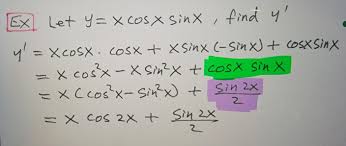 Ex Let y = x cosx sinx , find y'
y' = x cosx . cosx + x sinx (-sinx) + cosx sinx
= x cos²x - x sin²x + cosx sinx
= x (cos²x - sin²x) + sin 2x / 2
= x cos 2x + sin 2x / 2